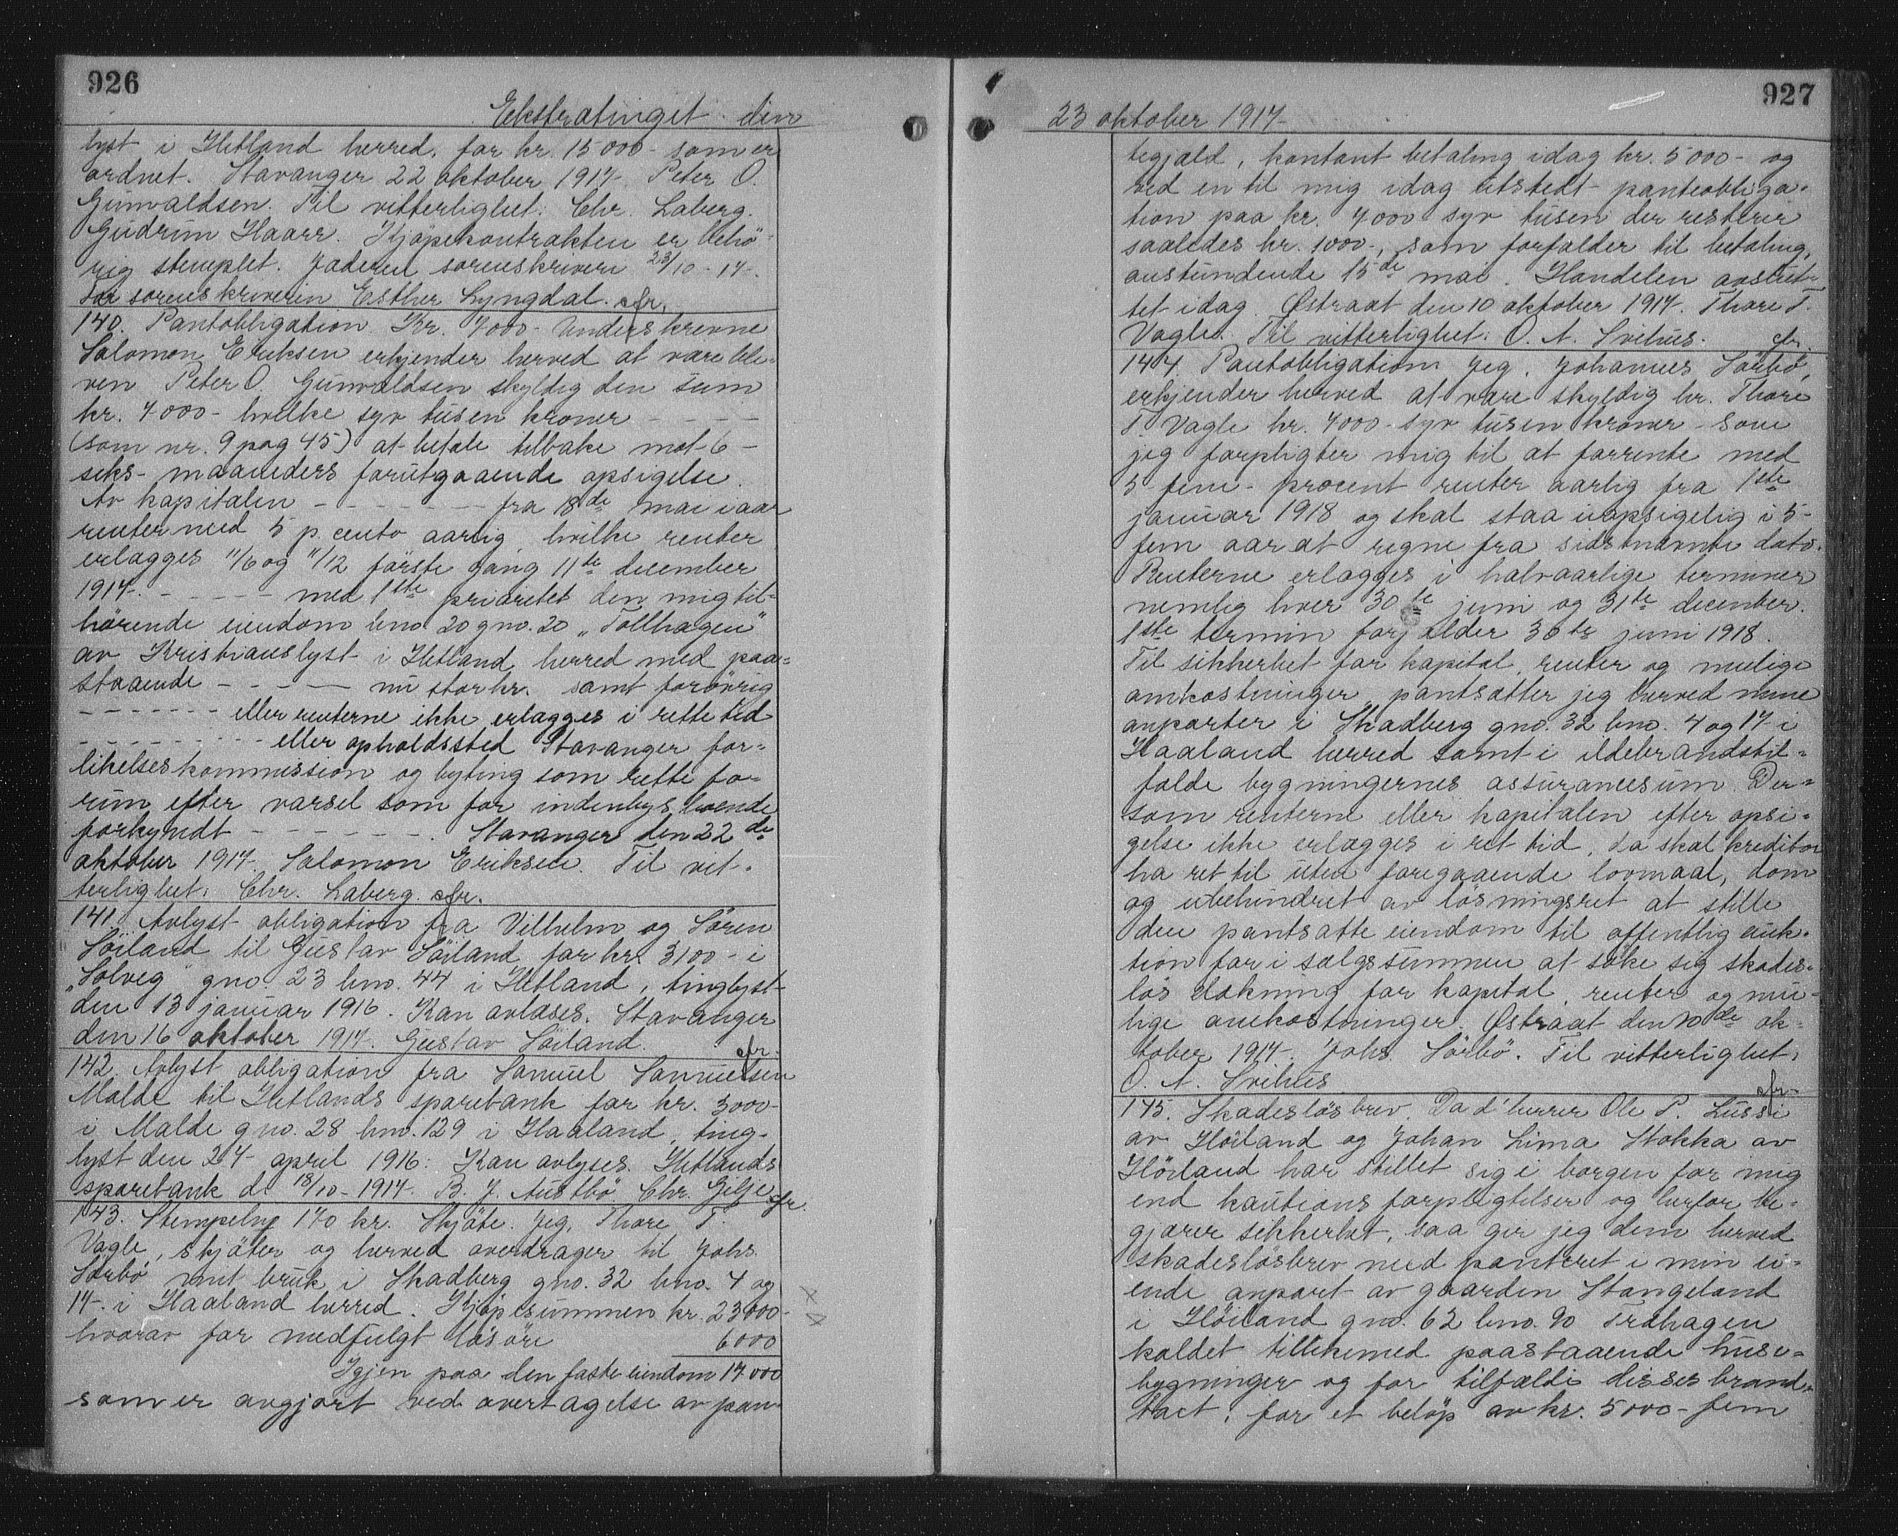 926
Ekstratinget den
lyst i Hetland herred, for kr. 15000 - som er
ordnet. Stavanger 22 oktober 1917. Peter O.
Gunvaldsen. Til vitterlighet: Chr. Laberg.
Gudrun Haarr. Kjøpekontrakten er behø-
rig stemplet. Jæderen sorenskriveri 23/10-17.
For sorenskriveren Esther Lyngdal. cfr.
140. Pantobligation Kr. 7000 - Underskrevne
Salomon Eriksen erkjender herved at være ble-
ven Peter O. Gunvaldsen skyldig den sum
kr. 7000 - hvilke syv tusen kroner - - - -
(som nr. 9 pag 45) at betale tilbake mot 6 -
seks - maaneders forutgaaende opsigelse.
Av kapitalen - - - - - - fra 18de mai iaar
renter med 5 p. cento aarlig, hvilke renter
erlægges 11/6 og 11/12 første gang 11te december
1917. - - - - - med 1ste prioritet den mig til-
hørende eiendom bno. 20 gno. 20 „Tollhagen"
av Kristianslyst i Hetland herred med paa-
staaende - - - - nu stor kr. samt forøvrig
- - - - - - - eller renterne ikke erlægges i rette tid
- - - - - - - - - eller opholdssted Stavanger for-
likelseskommission og byting som rette fo-
rum efter varsel som for indenbys boende
forkyndt - - - - - - - . Stavanger den 22de
oktober 1917 Salomon Eriksen. Til vit-
terlighet: Chr. Laberg. cfr.
141. Avlyst obligation fra Vilhelm og Søren
Søiland til Gustav Søiland for kr. 3100 - i
„Solveg" gno. 23 bno. 44 i Hetland, tinglyst
den 13 januar 1916. Kan avlæses. Stavanger
den 16 oktober 1917. Gustav Søiland.
cfr.
142. Avlyst obligation fra Samuel Samuelsen
Malde til Hetlands sparebank for kr. 3000 -
i Malde gno. 28 bno. 129 i Haaland, ting-
lyst den 27 april 1916. Kan avlyses. Hetlands
sparebank d. 18/10-1917. B. J. Austbø Chr. Gilje
cfr.
143. Stempelng 170 kr. Skjøte. Jeg, Thore T.
Vagle, skjøter og herved overdrager til Johs
Sørbø mit bruk i Skadberg gno. 32 bno. 4 og
17. i Haaland herred. Kjøpesummen kr. 23000 -
hvorav for medfulgt løsøre 6000
Igjen paa den faste eiendom 17000
som er avgjort ved overtagelse av pan-
927
23 oktober 1917
tegjæld, kontant betaling idag kr. 5000 - og
ved en til mig idag utstedt panteobliga-
tion paa kr. 7000 syv tusen der resterer
saaledes kr. 1000 -, som forfalder til betaling
anstundende 15de mai. Handelen avslut-
tet idag. Østraat den 10 oktober 1917. Thore T.
Vagle. Til vitterlighet: O. A. Svihus. cfr.
144. Pantobligation Jeg, Johannes Sørbø,
erkjender herved at være skyldig hr. Thore
T. Vagle kr. 7000 - syv tusen kroner - som
jeg forpligter mig til at forrente med
5 - fem - procent renter aarlig fra 1ste
januar 1918 og skal staa uopsigelig i 5 -
fem aar at regne fra sidstnævnte dato.
Renterne erlægges i halvaarlige terminer
nemlig hver 30te juni og 31te december.
1ste termin forfalder 30te juni 1918.
Til sikkerhet for kapital, renter og mulige
omkostninger pantsætter jeg herved mine
anparter i Skadberg gno. 32 bno. 4 og 17 i
Haaland herred samt i ildebrandstil-
fælde bygningernes assurancesum. Der-
som renterne eller kapitalen efter opsi-
gelse ikke erlægges i ret tid, da skal kreditor
ha ret til uten foregaaende lovmaal, dom
og ubehindret av løsningsret at stille
den pantsatte eiendom til offentlig auk-
tion for i salgssummen at søke sig skades-
løs dækning for kapital, renter og mu-
lige omkostninger. Østraat den 10de ok-
tober 1917. Johs Sørbø. Til vitterlighet:
O. A. Svihus
cfr.
145. Skadesløsbrev. Da d'herrer Ole P. Lussi
av Høiland og Johan Lima Stokka av
Høiland har stillet sig i borgen for mig
end kautions forpligtelser og herfor be-
gjærer sikkerhet, saa gir jeg dem herved
skadesløsbrev med panteret i min ei-
ende anpart av gaarden Stangeland
i Høiland gno. 62 bno. 90 Trahagen
kaldet tillikemed paastaaende huse-
bygninger og for tilfælde disses brand-
tact, for et beløp av kr. 5000 - fem